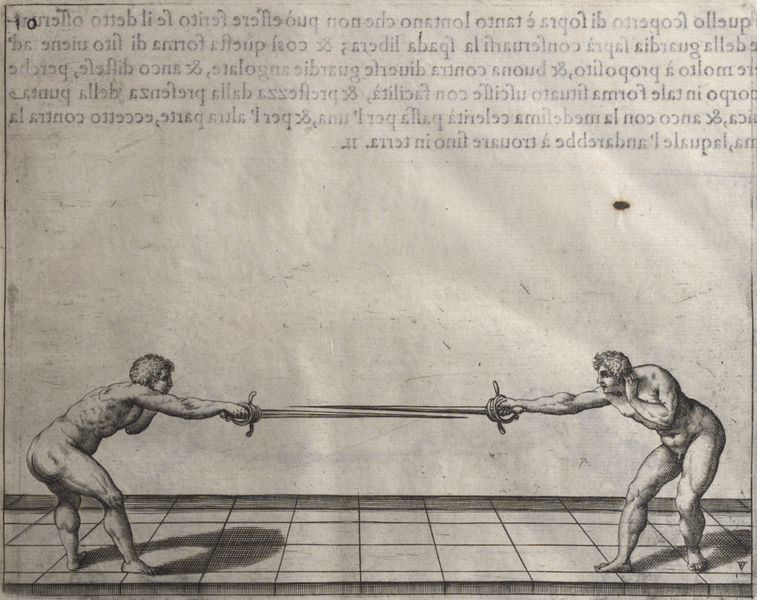 quello ſcoperto di ſopra è tanto lontano che non può eſſere ferito ſe il detto
e della guardia ſaprà conſeruarſi la ſpada libera; & così queſta forma di ſito uiene ad
re molto à propoſito, & buona contra diuerſe guardie angolate, & anco diſteſe, perche
corpo in tale forma ſituato uſciſſe con facilità, & preſtezza dalla preſenza della punta
ica, & anco con la medeſima celerità paſſa per l'una, & per l'altra parte, eccetto contra la
ma, laquale l'andarebbe à trouare fino in terra. 11.